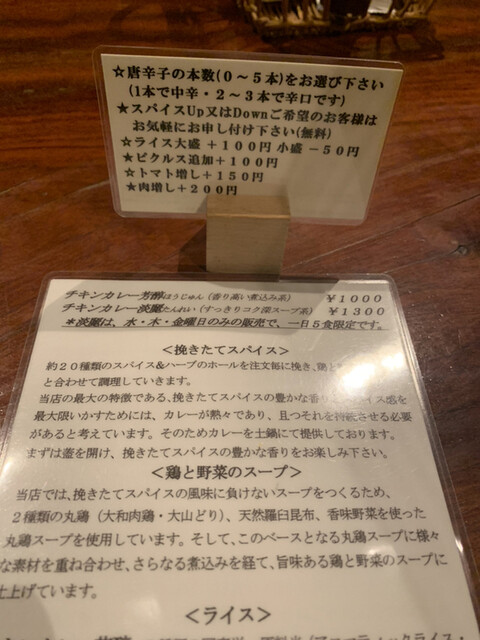 ☆唐辛子の本数(0～5本)をお選び下さい
(1本で中辛・2～3本で辛口です)
★スパイスUp又はDownご希望のお客様は
お気軽にお申し付け下さい(無料)
☆ライス大盛+100円 小盛-50円
★ピクルス追加+100円
☆トマト増し+150円
★肉増し+200円
チキンカレー芳醇ほうじゅん(香り高い煮込み系) ¥1000
チキンカレー淡麗たんれい(すっきりコク深スープ系) ¥1300
*淡麗は、水・木・金曜日のみの販売で、一日5食限定です。
<挽きたてスパイス>
約20種類のスパイス&ハーブのホールを注文毎に挽き、鶏と
と合わせて調理していきます。
当店の最大の特徴である、挽きたてスパイスの豊かな香り
最大限いかすためには、カレーが熱々であり、且つそれを持続させる必要
があると考えています。そのためカレーを土鍋にて提供しております。
まずは蓋を開け、挽きたてスパイスの豊かな香りをお楽しみ下さい。
<鶏と野菜のスープ>
当店では、挽きたてスパイスの風味に負けないスープをつくるため、
2種類の丸鶏(大和肉鶏・大山どり)、天然羅臼昆布、香味野菜を使った
丸鶏スープを使用しています。そして、このベースとなる丸鶏スープに様々
な素材を重ね合わせ、さらなる煮込みを経て、旨味ある鶏と野菜のスープに
仕上げています。
<ライス>